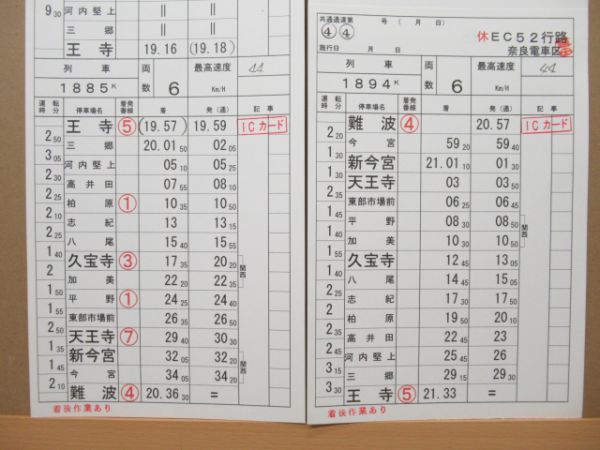 9 30
河内堅上 || ||
三郷 || ||
王寺 19.16 (19.18)
列車 両数 最高速度
1885K 6 Km/H 44
運転時分 停車場名 着発番線 着 発(通) 記事
王寺 ⑤ (19.57) 19.59 ICカード
2 50
三郷 20.01 50 02 05
3 05
河内堅上 05 10 05 25
2 30
高井田 07 55 08 10
2 25
柏原 ① 10 35 10 55
2 20
志紀 13 13 15
2 25
八尾 15 40 15 55
1 40
久宝寺 ③ 17 35 20 20 関西
2
加美 22 20 22 35
1 50
平野 ① 24 25 24 40
1 55
東部市場前 26 35 26 50
2 10
天王寺 ⑦ 29 30 30
2 05
新今宮 32 05 32 20
1 45
今宮 34 05 34 20
2 10
難波 ④ 20.36 30 =
着後作業あり
共通通達第 号 ( 月 日)
④ ④
施行日 月 日
休EC52行路
奈良電車区
列車 両数 最高速度
1894K 6 Km/H 44
運転時分 停車場名 着発番線 着 発(通) 記事
難波 ④ 20.57 ICカード
2 20
今宮 59 20 59 40
1 30
新今宮 21.01 10 01 30
天王寺 03 03 50
2 15
東部市場前 06 25 06 45
平野 08 30 08 50 関西
加美 10 30 10 50
久宝寺 12 45 13 05
1 40
八尾 14 45 15 05
2 25
志紀 17 30 17 50
2
柏原 19 50 20 10
高井田 22 45 23
2 45
河内堅上 25 45 26
3 15
三郷 29 15 29 30
3 30
王寺 ⑤ 21.33 =
着後作業あり